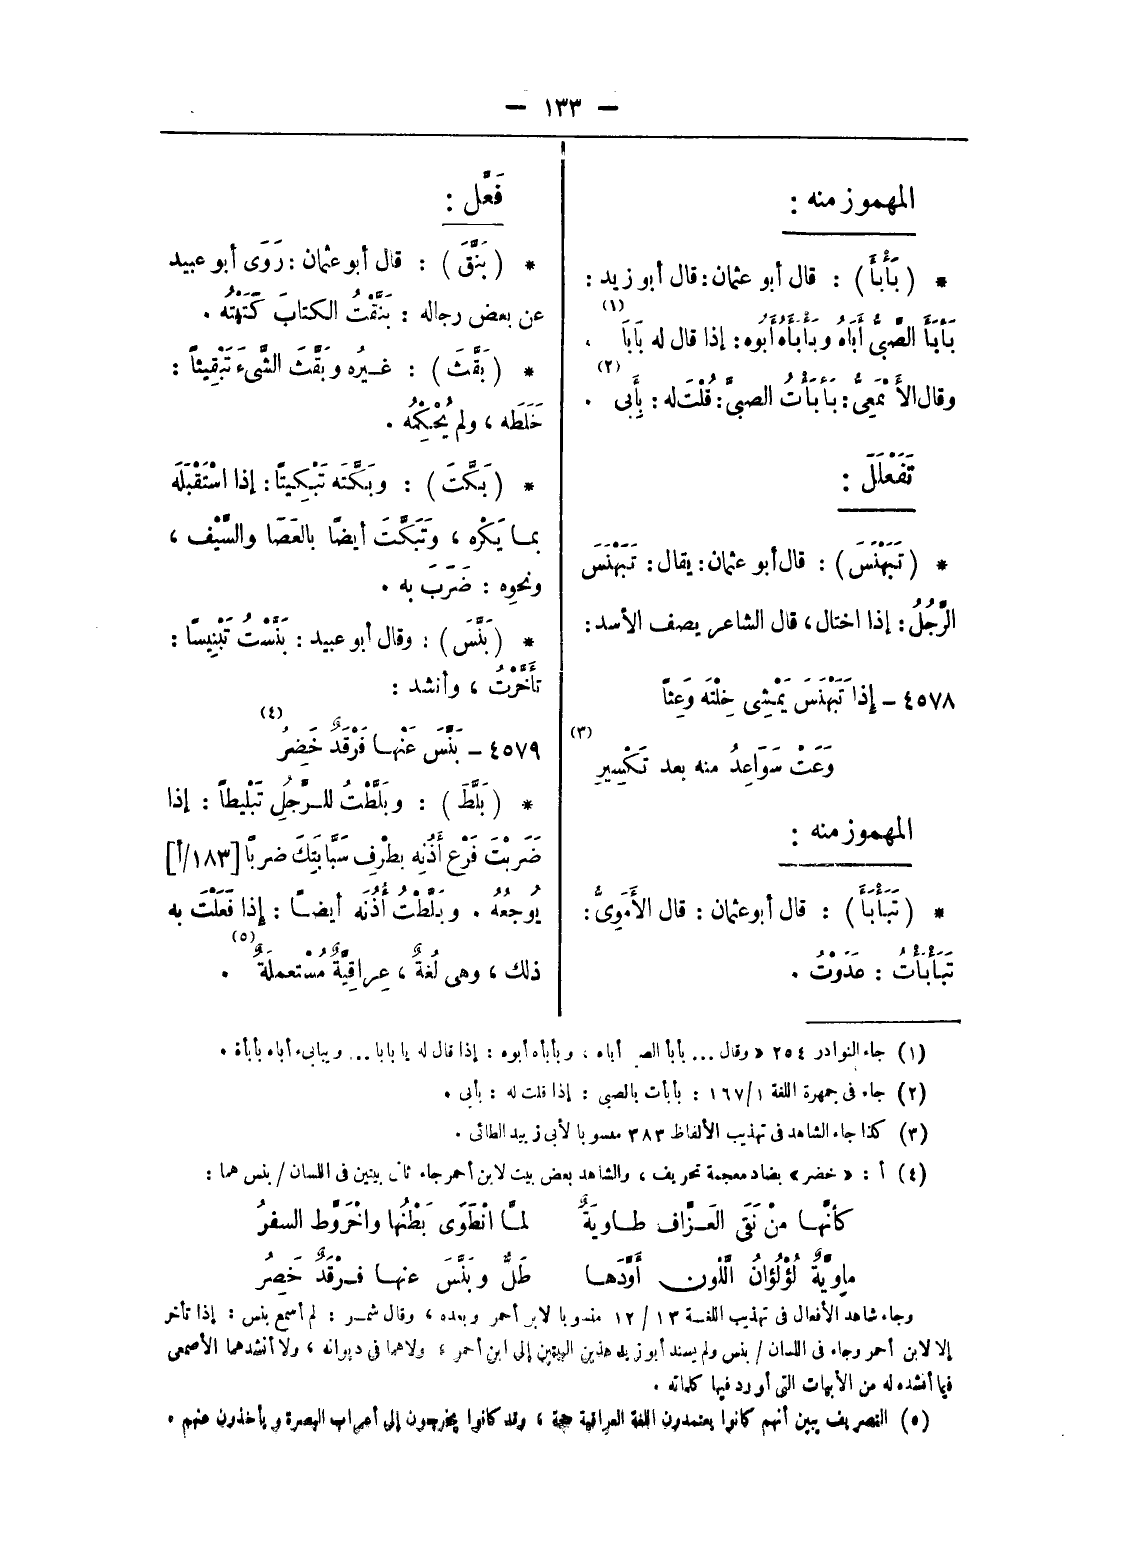 — ١٣٣ —
المهموز منه :
* ( بَأْبَأَ ) : قال أبو عثمان : قال أبو زيد :
بَأْبَأَ الصَّبىُّ أَبَاهُ وبَأْبَأَه أَبُوه : إذا قال له بَابَا (١) .
وقال الأَصْمَعِىُّ : بَأْبَأْتُ الصبىَّ : قُلْتَ له : بِأَبى (٢) .
تَفَعْلَلَ :
* ( تَبَهْنَسَ ) : قال أبو عثمان : يقال : تَبَهْنَسَ
الرَّجُلُ : إذا اختال ، قال الشاعر يصف الأسد :
٤٥٧٨ – إِذَا تَبَهْنَسَ يَمْشِى خِلْتَه وَعِثاً
وَعَتْ سَوَاعِدُ منه بعد تَكْسِيرِ (٣)
المهموز منه :
* ( تَبَأْبَأَ ) : قال أبو عثمان : قال الأَمَوِىُّ :
تَبَأْبَأْتُ : عَدَوْتُ .
فَعَّل :
* ( بَنَّقَ ) : قال أبو عثمان : رَوَى أبو عبيد
عن بعض رجاله : بَنَّقْتُ الكتابَ كَتَبْتُه .
* ( بَقَّثَ ) : غيره وبَقَّثَ الشَّىءَ تَبْقِيثاً :
خَلَطَه ، ولم يُحْكِمْهُ .
* ( بَكَّتَ ) : وبَكَّتَه تَبْكيتًا : إذا اسْتَقْبَلَه
بما يَكْره ، وتَبَكَّتَ أيضًا بالعَصَا والسَّيْف ،
ونحوِه : ضَرَبَ به .
* ( بَنَّسَ ) : وقال أبو عبيد : بَنَّسْتُ تَبْنِيسًا :
تأَخَّرْتُ ، وأنشد :
٤٥٧٩ – بَنَّسَ عَنْها فَرْقَدٌ خَضِرُ (٤)
* ( بَلَّطَ ) : وبَلَّطْتُ للرَّجُلِ تَبْليطاً : إذا
ضَرَبْتَ فَرْع أُذُنِه بطرفِ سَبَّابَتِكَ ضربًا [١٨٣/أ]
يُوجعُهُ . وبَلَّطْتُ أُذُنَه أيضًا : إذا فَعَلْتَ به
ذلك ، وهى لُغةٌ ، عِراقِيَّةٌ مُسْتعملَةٌ (٥) .
(١) جاء النوادر ٢٥٤ « وقال ... بأبأ الص أباه ، وبأبأه أبوه : إذا قال له يا بابا ... ويبابىء أباه بأبأة .
(٢) جاء فى جمهرة اللغة ١/١٦٧ : بأبأت بالصبى : إذا قلت له : بأبى .
(٣) كذا جاء الشاهد فى تهذيب الألفاظ ٣٨٣ منسوبا لأبى زبيد الطائى .
(٤) أ : « خضر » بضاد معجمة تحريف ، والشاهد بعض بيت لابن أحمر جاء ثانى بيتين فى اللسان / بنس هما :
كأنَّها مِنْ نَقَى العَزَّاف طاويَةٌ لمَّا انْطَوَى بَطْنُها واخْرَوَّط السفرُ
ماوِيَّةٌ لُؤْلُؤانُ اللَّون أَوَّدَها طَلٌّ وبَنَّسَ عنها فَرْقَدٌ خَصِرُ
وجاء شاهد الأفعال فى تهذيب اللغة ١٣ / ١٢ منسوبا لابن أحمر وبعده ، وقال شمر : لم أسمع بنس : إذا تأخر
إلا لابن أحمر وجاء فى اللسان / بنس ولم يسند أبو زيد هذين البيتين إلى ابن أحمر ، ولاهما فى ديوانه ، ولا أنشدهما الأصمعى
فيما أنشده له من الأبيات التى أورد فيها كلماته .
(٥) التصريف يبين أنهم كانوا يعتمدون اللغة العراقية حجة ، وقد كانوا يخرجون إلى أعراب البصرة ويأخذون عنهم .